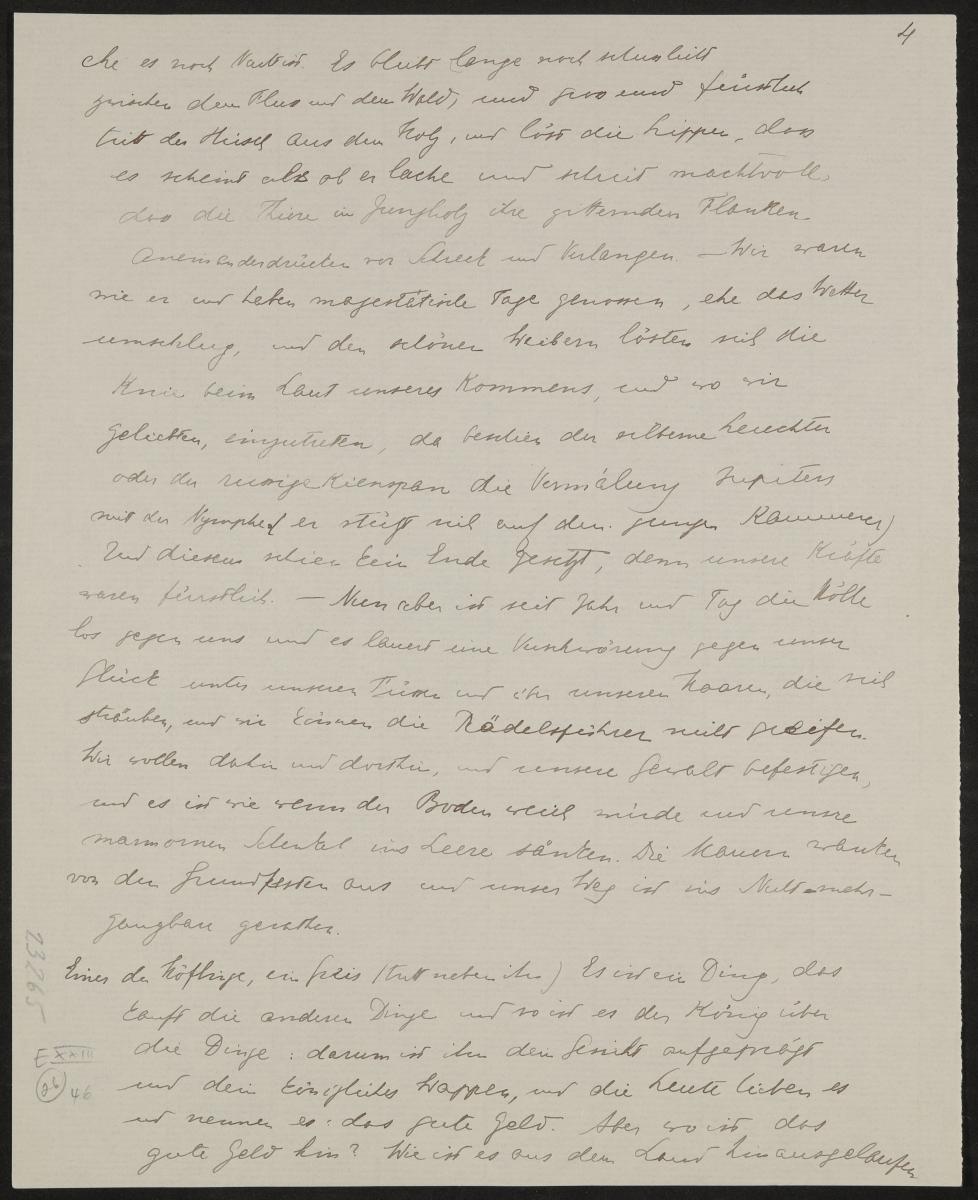 4
ehe es noch Nacht ist. Es bleibt lange noch schußlicht
zwischen dem Fluss und dem Wald, und gross und fürstlich
tritt der Hirsch aus dem Holz, und löst die Lippen, dass
es scheint als ob er lache und schreit machtvoll,
dass die Thiere im Jungholz ihre zitternden Flanken
aneinanderdrücken vor Schreck und Verlangen. – Wir waren
wie er und haben majestätische Tage genossen, ehe das Wetter
umschlug, und den schönen Weibern lösten sich die
Knie beim Laut unseres Kommens, und wo wir
geliebten, einzutreten, da beschien der silberne Leuchter
oder der russige Kienspan die Vermälung Jupiters
mit der Nymphe (er stützt sich auf den jungen Kämmerer)
Und diesem schien kein Ende gesetzt, denn unsere Kräfte
waren fürstlich. – Nun aber ist seit Jahr und Tag die Hölle
los gegen uns und es lauert eine Verschwörung gegen unser
Glück unter unseren Füssen und über unseren Haaren, die sich
sträuben, und wir können die Rädelsführer nicht greifen.
Wir wollen dahin und dorthin, und unsere Gewalt befestigen,
und es ist wie wenn der Boden weich würde und unsre
marmornen Schenkel ins Leere sänken. Die Mauern wanken
von den Grundfesten aus und unser Weg ist ins Nicht-mehr-
gangbare gerathen.
Einer der Höflinge, ein Greis (tritt neben ihn) Es ist ein Ding, das
kauft die anderen Dinge und so ist es der König über
die Dinge: darum ist ihm dein Gesicht aufgeprägt
und dein königliches Wappen, und die Leute lieben es
und nennen es: das gute Geld. Aber wo ist das
gute Geld hin? Wie ist es aus dem Land hinausgelaufen
23265
E XXIII
26
46